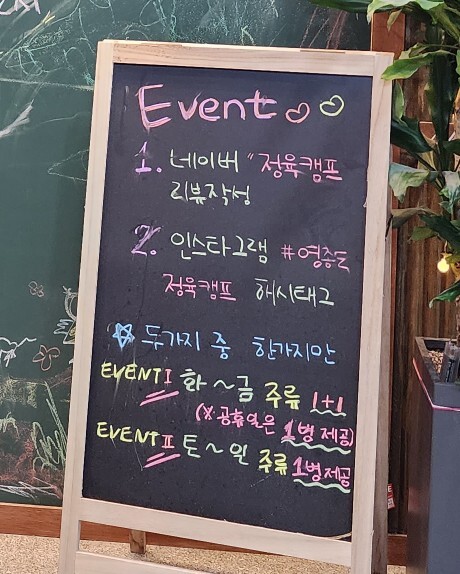 Event
1. 네이버 "정육캠프
리뷰작성
2. 인스타그램 #영종도
정육캠프 해시태그
두가지 중 한가지만
EVENTⅠ 화~금 주류 1+1
(※공휴일은 1병 제공)
EVENTⅡ 토~일 주류 1병제공